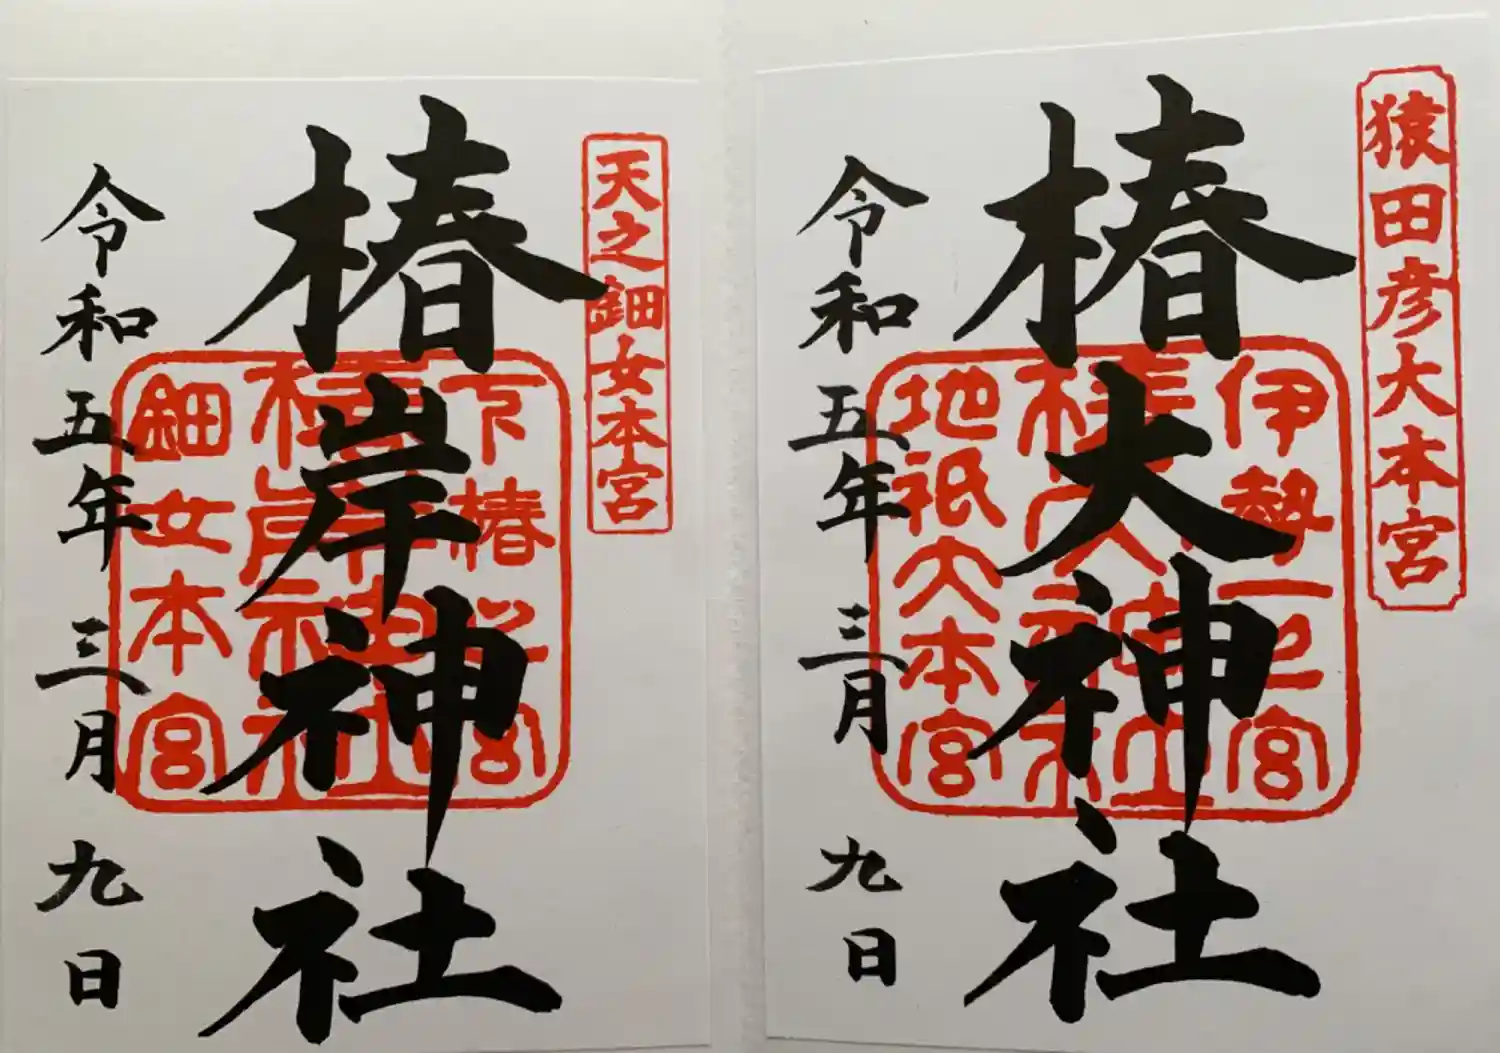 天之鈿女本宮
椿岸神社
下椿
椿岸神社
鈿女本宮
令和五年三月九日
猿田彦大本宮
椿大神社
伊勢一之宮
椿大神社
地祇大本宮
令和五年三月九日